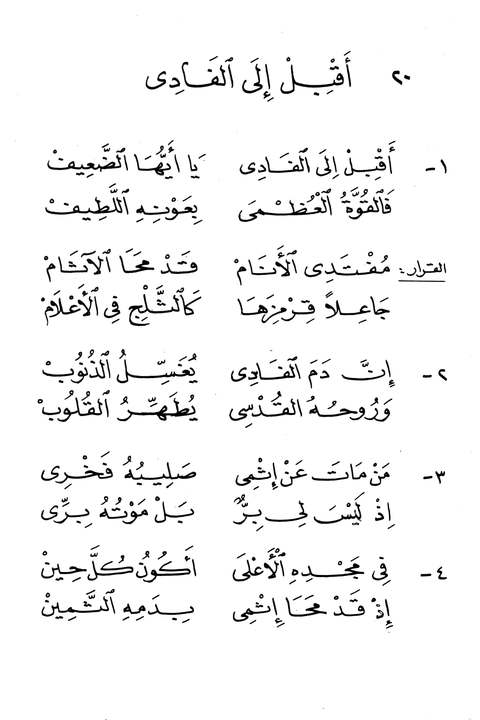 ٢٠ أَقْبِلْ إِلَى ٱلفَادِى
١- أَقْبِلْ إِلَى ٱلفَادِى يَا أَيُّهَا ٱلضَّعِيفْ
فَٱلقُوَّةُ ٱلْعُظْمَى بِعَوْنِهِ ٱللَّطِيفْ
القرار: مُفْتَدِى ٱلأَنَامْ قَدْ مَحَا ٱلآثَامْ
جَاعِلاً قِرْمِزَهَا كَٱلثَّلْجِ فِي ٱلأَعْلَامْ
٢- إِنَّ دَمَ ٱلفَادِى يُغَسِّلُ ٱلذُنُوبْ
وَرُوحُهُ ٱلقُدْسِى يُطَهِّرُ ٱلقُلُوبْ
٣- مَنْ مَاتَ عَنْ إِثْمِى صَلِيبُهُ فَخْرِى
إِذْ لَيْسَ لِي بِرٌّ بَلْ مَوْتُهُ بِرِّى
٤- فِي مَجْدِهِ ٱلْأَعْلَى أَكُونُ كُلَّ حِينْ
إِذْ قَدْ مَحَا إِثْمِى بِدَمِهِ ٱلثَّمِينْ